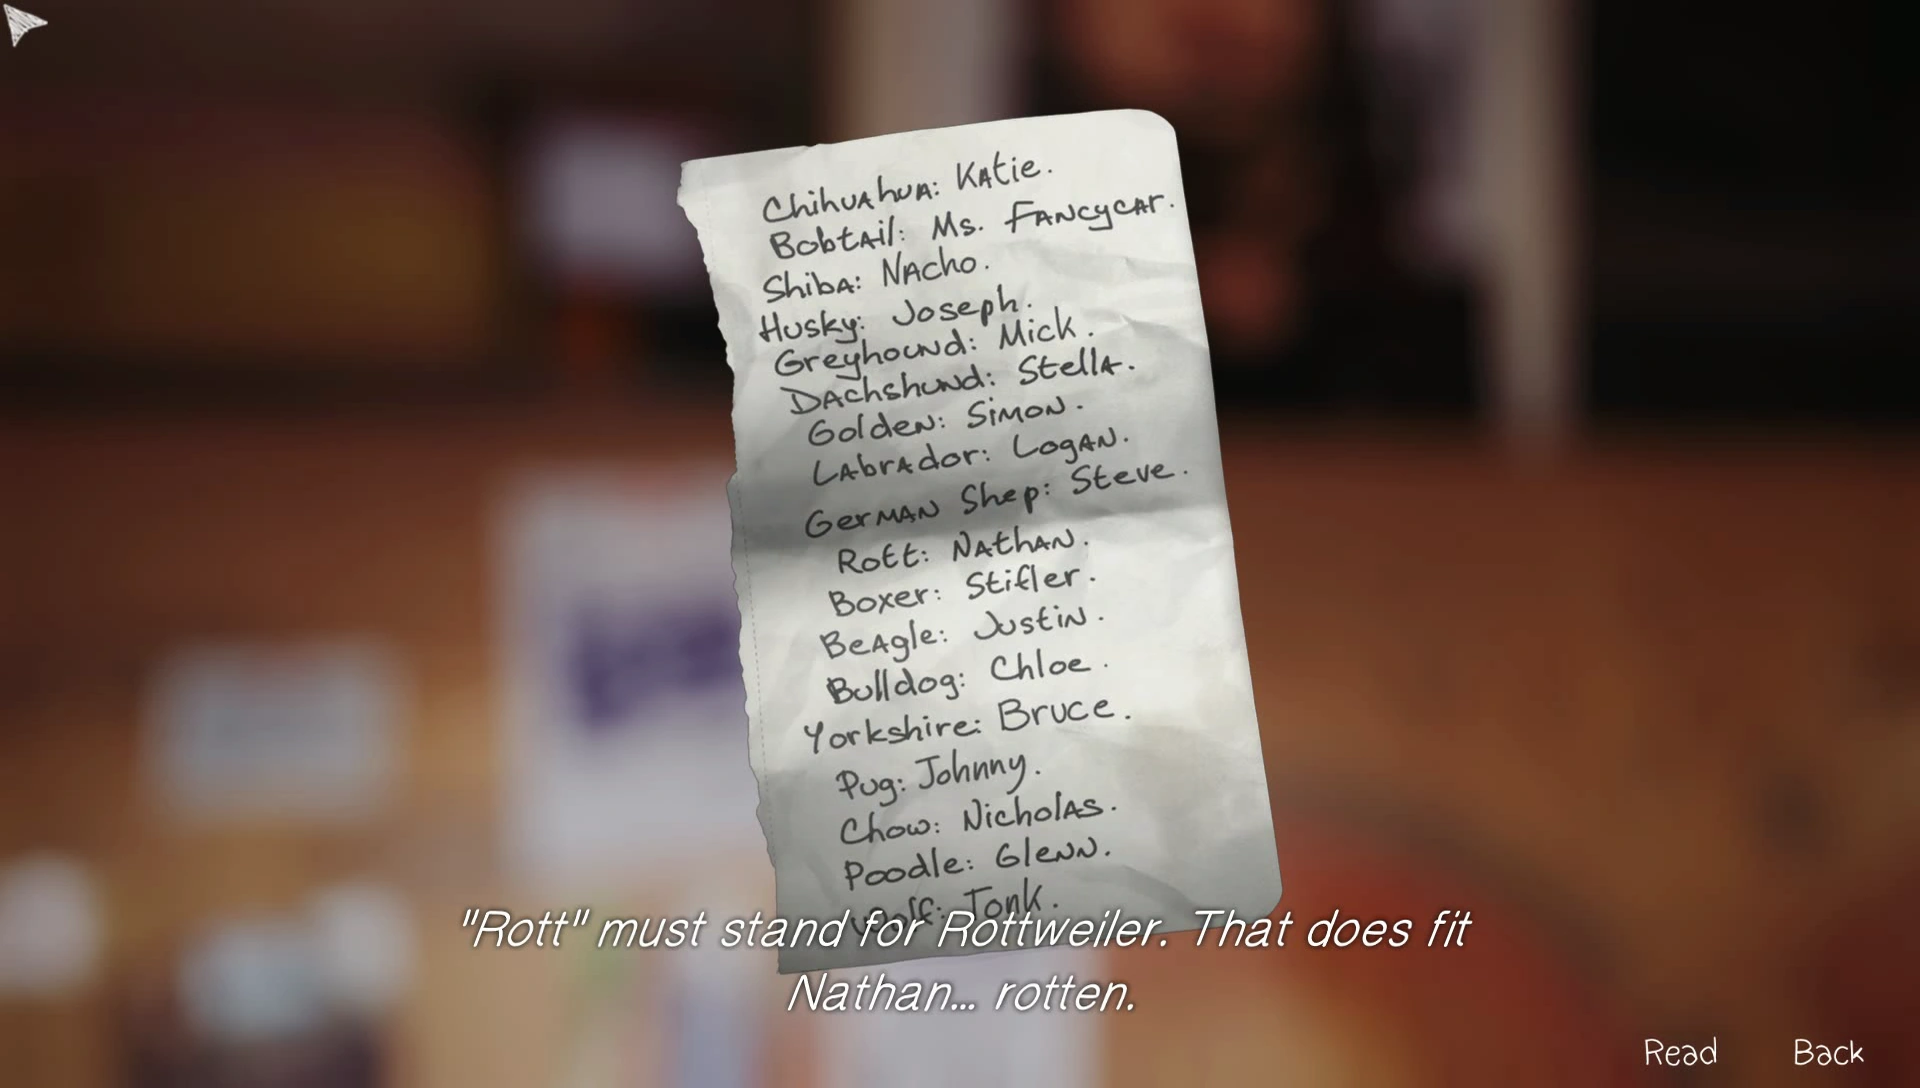 Chihuahua: Katie.
Bobtail: Ms. Fancycar.
Shiba: Nacho.
Husky: Joseph.
Greyhound: Mick.
Dachshund: Stella.
Golden: Simon.
Labrador: Logan.
German Shep: Steve.
Rott: Nathan.
Boxer: Stifler.
Beagle: Justin.
Bulldog: Chloe.
Yorkshire: Bruce.
Pug: Johnny.
Chow: Nicholas.
Poodle: Glenn.
Wolf: Tonk.
"Rott" must stand for Rottweiler. That does fit
Nathan... rotten.
Read Back